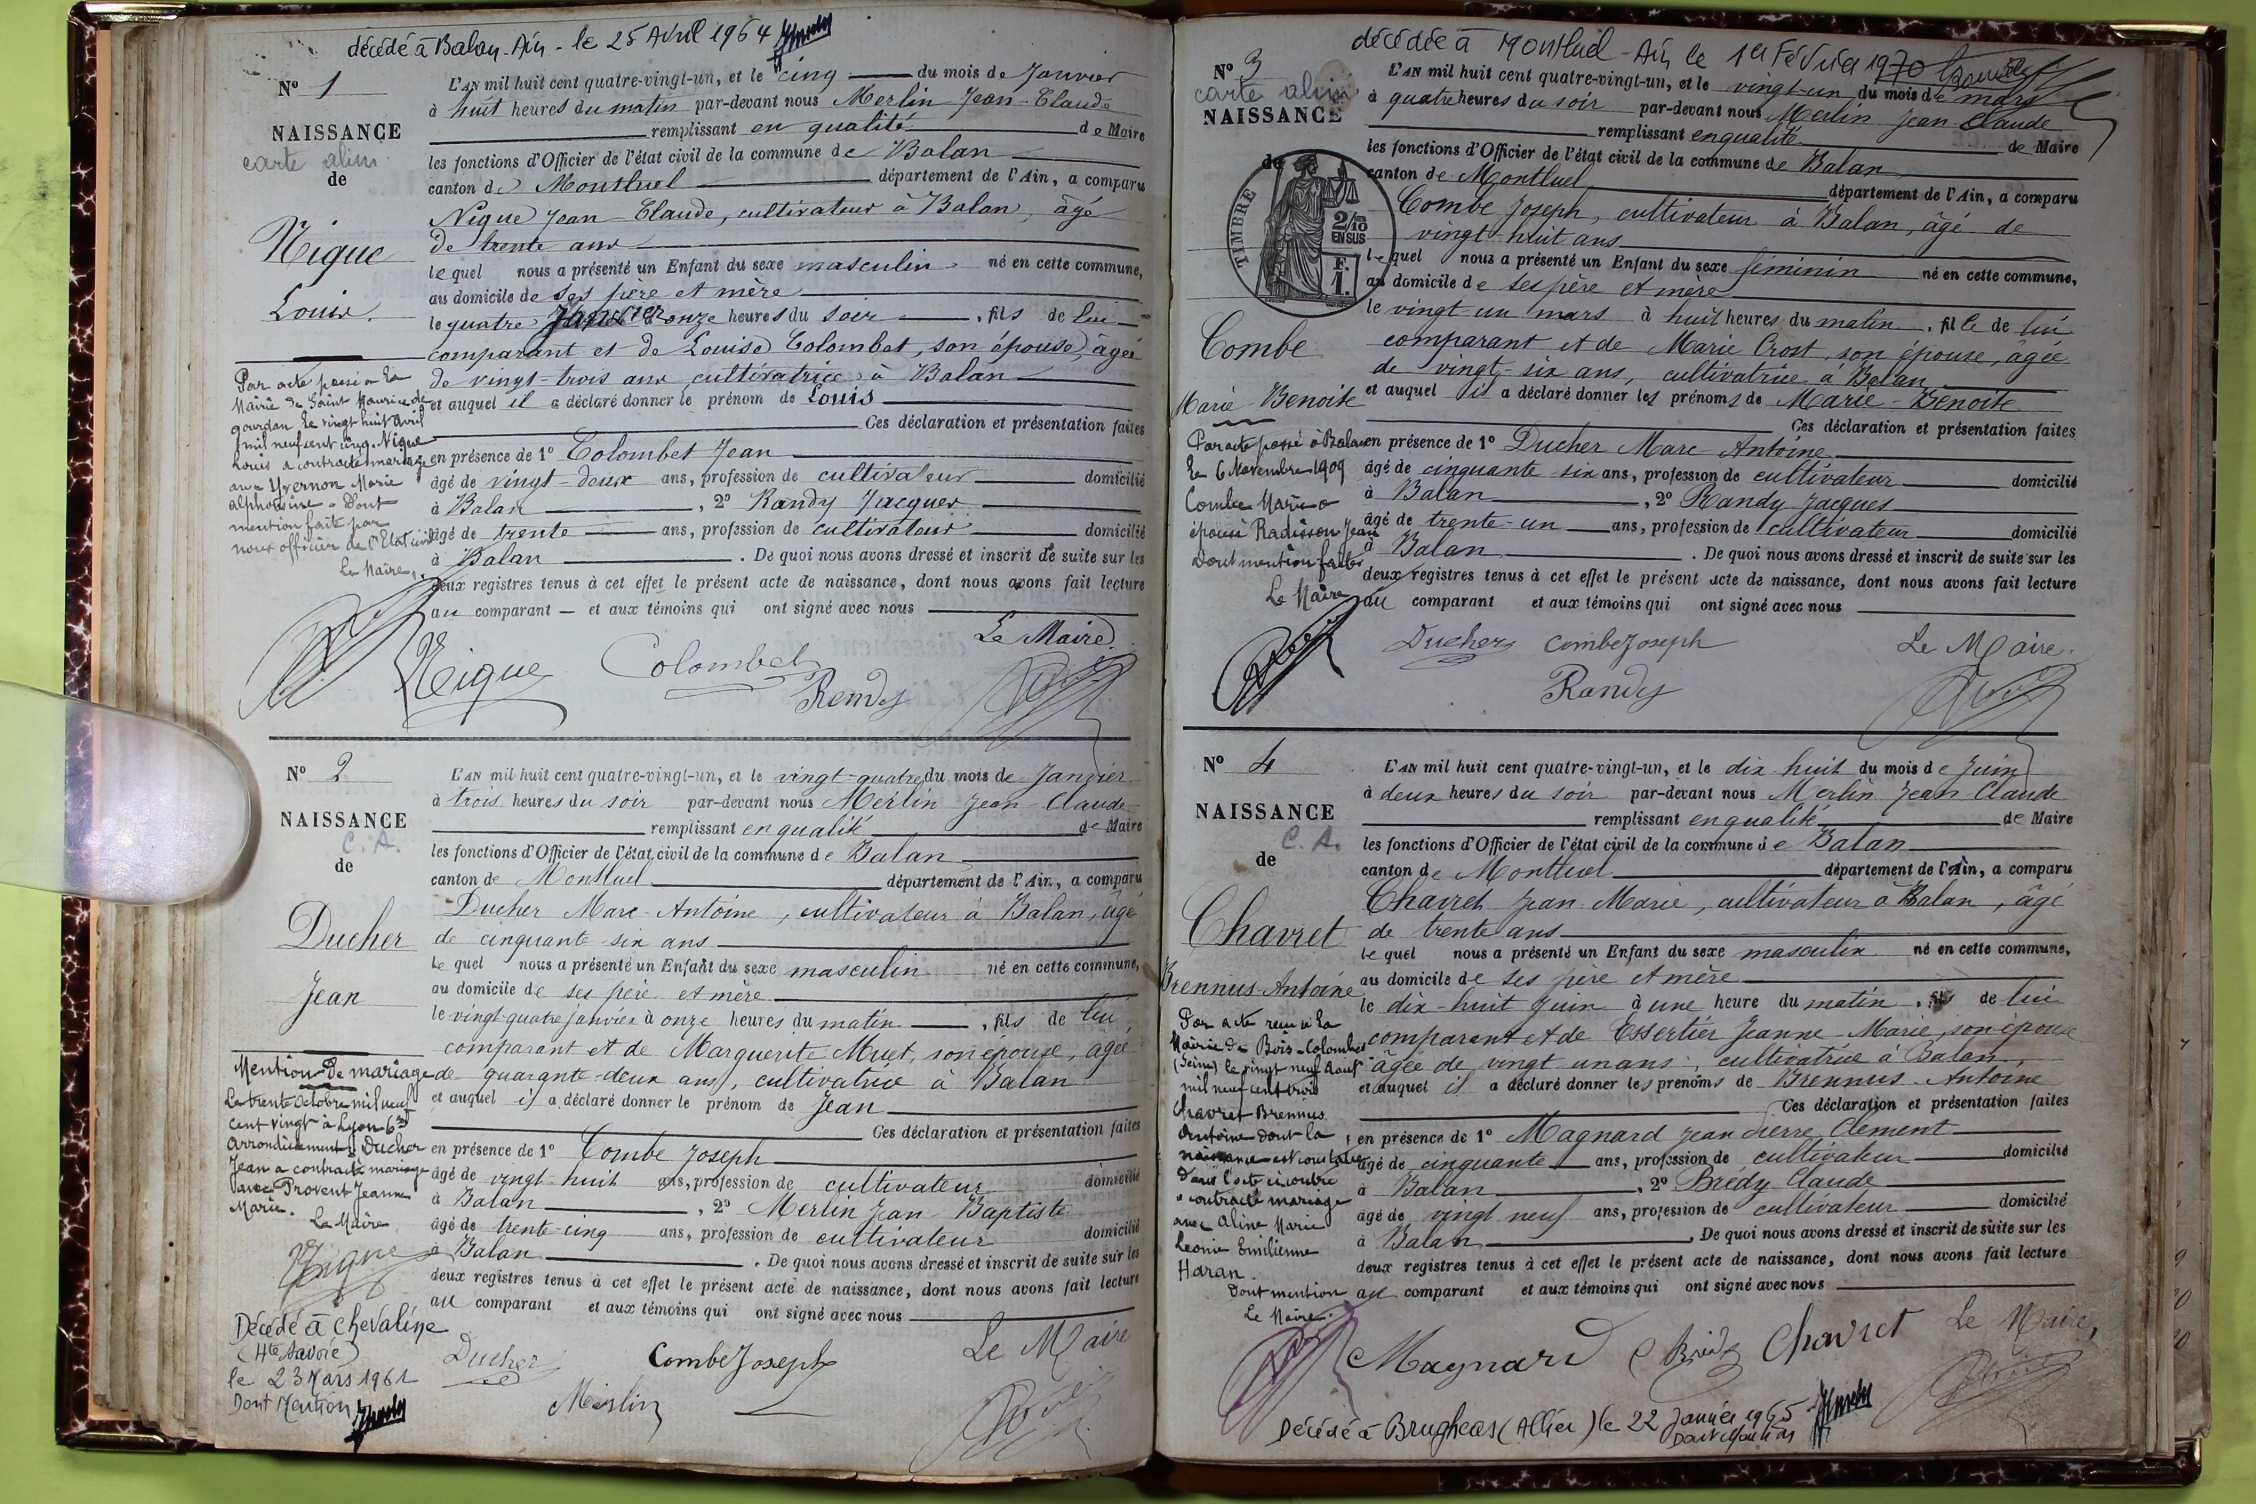 décédé à Balan-Ain - le 25 Avril 1964
N° 1
NAISSANCE
carte alim.
de
Nique
Louis.
L'AN mil huit cent quatre-vingt-un, et le cinq du mois de Janvier
à huit heures du matin par-devant nous Merlin Jean-Claude
remplissant en qualité de Maire
les fonctions d'Officier de l'état civil de la commune de Balan
canton de Montluel département de l'Ain, a comparu
Nique Jean-Claude, cultivateur à Balan, âgé
de trente ans
lequel nous a présenté un Enfant du sexe masculin né en cette commune,
au domicile de ses père et mère
le quatre Janvier à onze heures du soir, fils de lui
comparant et de Louise Colombet, son épouse, âgée
de vingt-trois ans cultivatrice à Balan
et auquel il a déclaré donner le prénom de Louis
Ces déclaration et présentation faites
en présence de 1° Colombet Jean
âgé de vingt-deux ans, profession de cultivateur domicilié
à Balan, 2° Randy Jacques
âgé de trente ans, profession de cultivateur domicilié
à Balan. De quoi nous avons dressé et inscrit de suite sur les
deux registres tenus à cet effet le présent acte de naissance, dont nous avons fait lecture
au comparant et aux témoins qui ont signé avec nous
Par acte passé à la
Mairie de Saint Maurice de
gourdan le vingt huit avril
mil neuf cent cinq. Nique
Louis a contracté mariage
avec Yvernon Marie
alphonsine - Dont
mention faite par
nous officier de l'Etat civil
Le Maire,
Le Maire.
Nique Colombet
Rendy
N° 2
NAISSANCE
C. A.
de
Ducher
Jean
L'AN mil huit cent quatre-vingt-un, et le vingt-quatre du mois de Janvier
à trois heures du soir par-devant nous Merlin Jean-Claude
remplissant en qualité de Maire
les fonctions d'Officier de l'état civil de la commune de Balan
canton de Montluel département de l'Ain, a comparu
Ducher Marc-Antoine, cultivateur à Balan, âgé
de cinquante six ans
lequel nous a présenté un Enfant du sexe masculin né en cette commune,
au domicile de ses père et mère
le vingt quatre janvier à onze heures du matin, fils de lui
comparant et de Marguerite Muet, son épouse, âgée
de quarante-deux ans, cultivatrice à Balan
et auquel il a déclaré donner le prénom de Jean
Ces déclaration et présentation faites
en présence de 1° Combe Joseph
âgé de vingt-huit ans, profession de cultivateur domicilié
à Balan, 2° Merlin Jean Baptiste
âgé de trente-cinq ans, profession de cultivateur domicilié
à Balan. De quoi nous avons dressé et inscrit de suite sur les
deux registres tenus à cet effet le présent acte de naissance, dont nous avons fait lecture
au comparant et aux témoins qui ont signé avec nous
Mention de mariage
Le trente Octobre mil neuf
cent vingt à Lyon 6me
arrondissement Ducher
Jean a contracté mariage
avec Provent Jeanne
Marie.
Le Maire
Nique
Décédé à Chevaline
(Hte Savoie)
le 23 Mars 1961
Dont Mention
Ducher Combe Joseph Le Maire
Merlin
décédée à Montluel - Ain le 1er Février 1970
N° 3
carte alim
NAISSANCE
de
TIMBRE
2/10
EN SUS
F.
1.
Combe
Marie-Benoite
L'AN mil huit cent quatre-vingt-un, et le vingt-un du mois de mars
à quatre heures du soir par-devant nous Merlin Jean Claude
remplissant en qualité de Maire
les fonctions d'Officier de l'état civil de la commune de Balan
canton de Montluel département de l'Ain, a comparu
Combe Joseph, cultivateur à Balan, âgé de
vingt-huit ans
lequel nous a présenté un Enfant du sexe féminin né en cette commune,
au domicile de ses père et mère
le vingt un mars à huit heures du matin, fille de lui
comparant et de Marie Crost, son épouse, âgée
de vingt-six ans, cultivatrice à Balan
et auquel il a déclaré donner les prénoms de Marie-Benoite
Ces déclaration et présentation faites
en présence de 1° Ducher Marc Antoine
âgé de cinquante six ans, profession de cultivateur domicilié
à Balan, 2° Randy Jacques
âgé de trente-un ans, profession de cultivateur domicilié
à Balan. De quoi nous avons dressé et inscrit de suite sur les
deux registres tenus à cet effet le présent acte de naissance, dont nous avons fait lecture
au comparant et aux témoins qui ont signé avec nous
Par acte passé à Balan
le 6 Novembre 1909
Combe Marie a
épousé Radisson Jean
Dont mention faite
Le Maire
Ducher Combe Joseph Le Maire.
Randy
N° 4
NAISSANCE
C. A.
de
Chavret
Brennus-Antoine
L'AN mil huit cent quatre-vingt-un, et le dix-huit du mois de Juin
à deux heures du soir par-devant nous Merlin Jean-Claude
remplissant en qualité de Maire
les fonctions d'Officier de l'état civil de la commune de Balan
canton de Montluel département de l'Ain, a comparu
Chavret Jean Marie, cultivateur à Balan, âgé
de trente ans
lequel nous a présenté un Enfant du sexe masculin né en cette commune,
au domicile de ses père et mère
le dix-huit Juin à une heure du matin, fils de lui
comparant et de Essertier Jeanne-Marie, son épouse
âgée de vingt un ans, cultivatrice à Balan.
et auquel il a déclaré donner les prénoms de Brennus-Antoine
Ces déclaration et présentation faites
en présence de 1° Magnard Jean Pierre Clement
âgé de cinquante ans, profession de cultivateur domicilié
à Balan, 2° Brédy Claude
âgé de vingt neuf ans, profession de cultivateur domicilié
à Balan. De quoi nous avons dressé et inscrit de suite sur les
deux registres tenus à cet effet le présent acte de naissance, dont nous avons fait lecture
au comparant et aux témoins qui ont signé avec nous
Par acte reçu à la
Mairie de Bois-Colombes
(Seine) le vingt neuf Aout
mil neuf cent trois
Chavret Brennus
Antoine dont la
naissance est constatée
dans l'acte ci contre
a contracté mariage
avec Aline Marie
Leonie Emilienne
Haran.
Dont mention
Le Maire.
Magnard Brédy Chavret Le Maire,
Décédé à Brugheas (Allier) le 22 Janvier 1965
Dont Mention